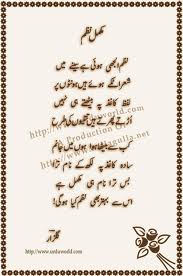 مکمل نظم
نظم الجھی ہوئی ہے سینے میں
شعر اٹکے ہوئے ہیں ہونٹوں پر
لفظ کاغذ پہ بیٹھتے ہی نہیں
اُڑتے پھرتے ہیں تتلیوں کی طرح
کب سے بیٹھا ہوں میں جانم
سادہ کاغذ پہ لکھ کے نام ترا
بس ترا نام ہی مکمل ہے
اس سے بہتر بھی نظم کیا ہوگی!
گلزار
http://www.urduworld.com